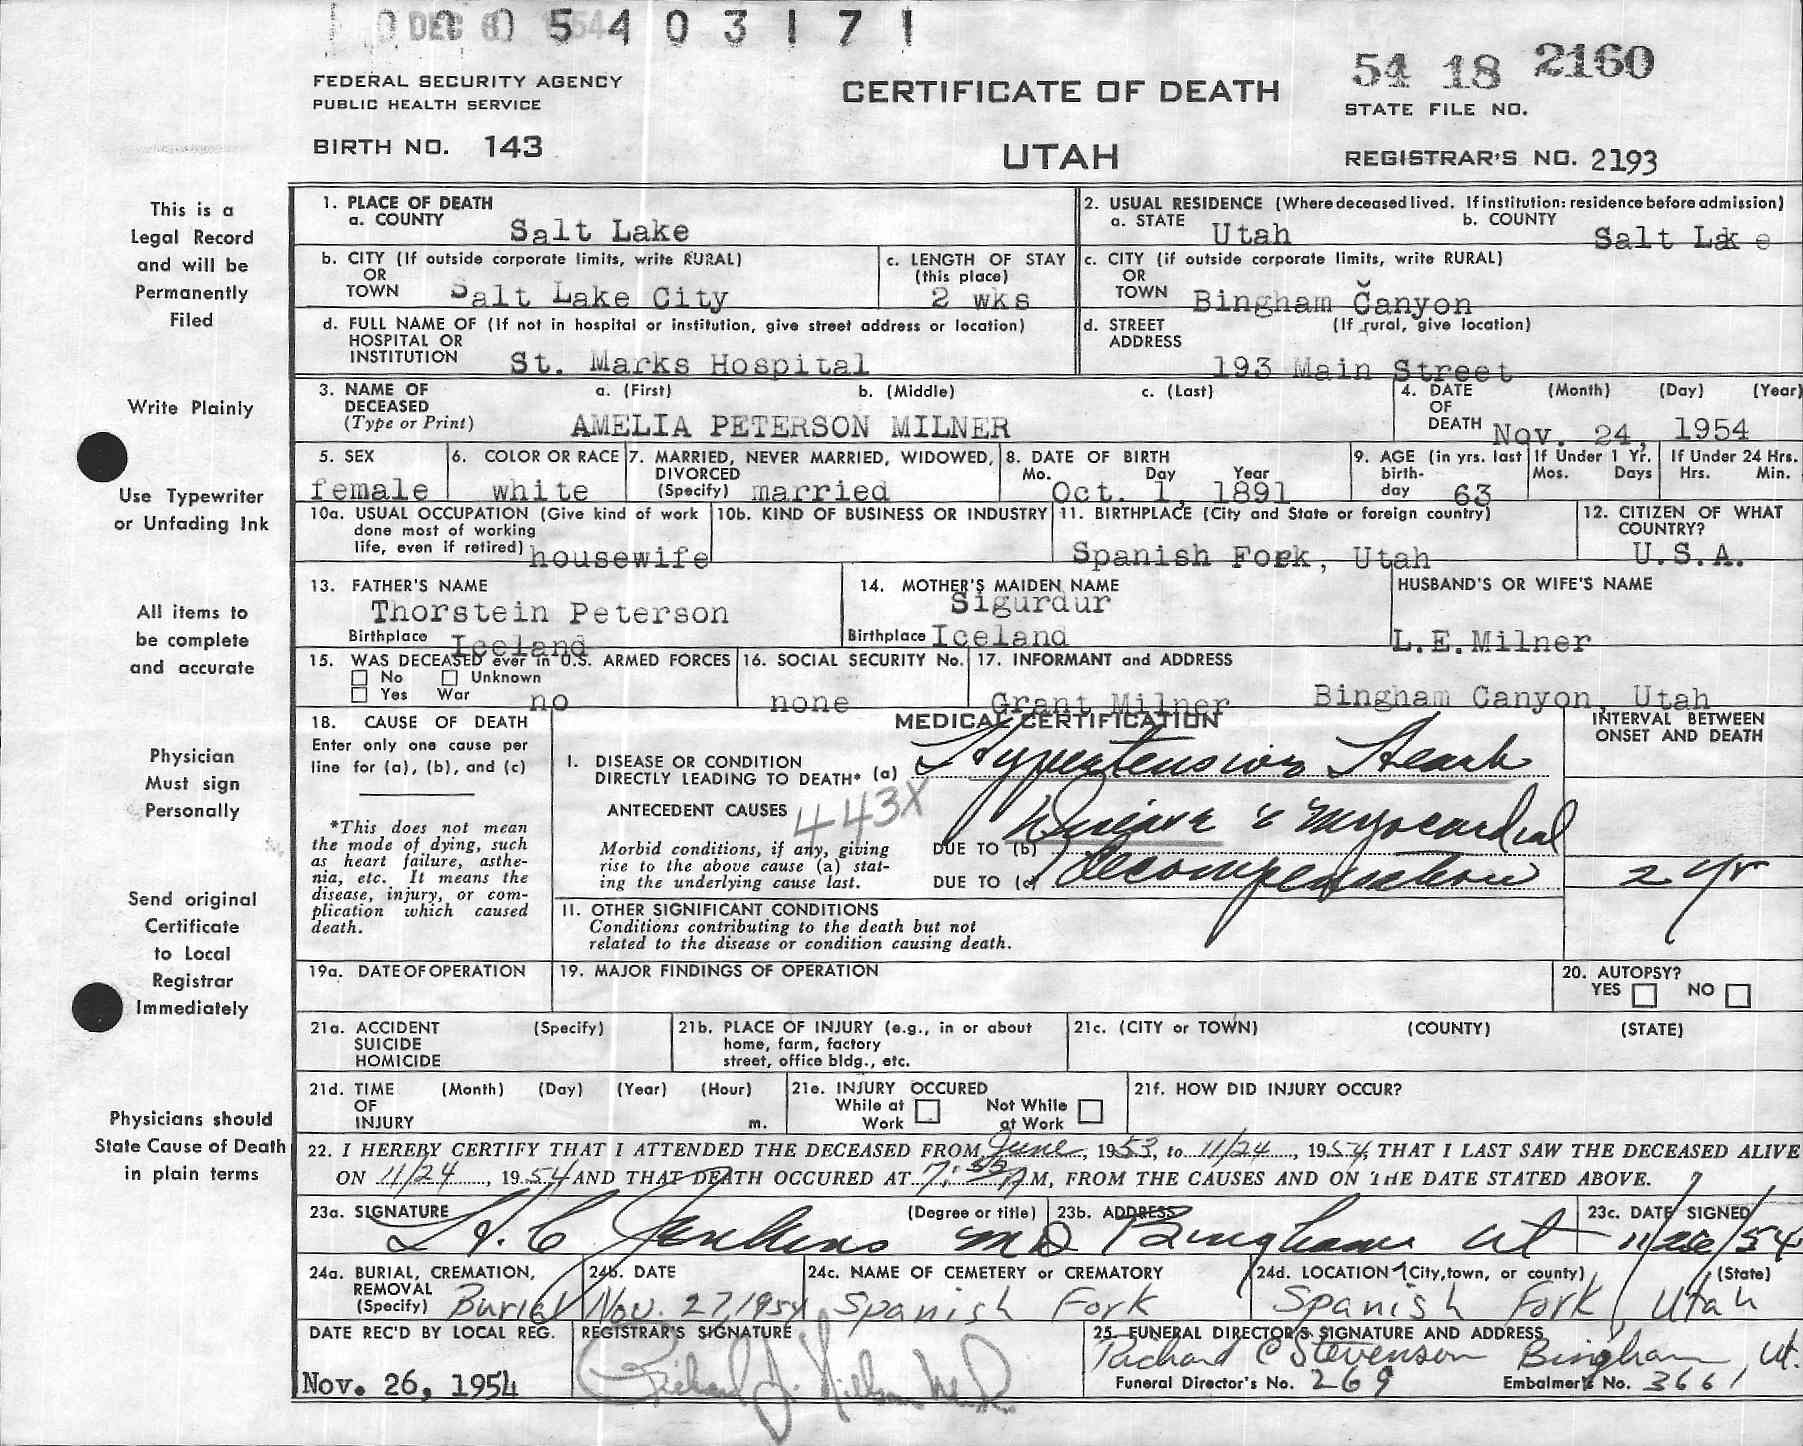 DEC 6 1954
0 0 5 4 0 3 1 7 1
54 18 2160
FEDERAL SECURITY AGENCY
PUBLIC HEALTH SERVICE
CERTIFICATE OF DEATH
STATE FILE NO.
BIRTH NO. 143
UTAH
REGISTRAR'S NO. 2193
This is a
Legal Record
and will be
Permanently
Filed
Write Plainly
Use Typewriter
or Unfading Ink
All items to
be complete
and accurate
Physician
Must sign
Personally
Send original
Certificate
to Local
Registrar
Immediately
Physicians should
State Cause of Death
in plain terms
1. PLACE OF DEATH
a. COUNTY Salt Lake
2. USUAL RESIDENCE (Where deceased lived. If institution: residence before admission)
a. STATE Utah b. COUNTY Salt Lake
b. CITY (If outside corporate limits, write RURAL)
OR
TOWN Salt Lake City
c. LENGTH OF STAY
(this place)
2 wks
c. CITY (if outside corporate limits, write RURAL)
OR
TOWN Bingham Canyon
d. FULL NAME OF (If not in hospital or institution, give street address or location)
HOSPITAL OR
INSTITUTION St. Marks Hospital
d. STREET (If rural, give location)
ADDRESS
193 Main Street
3. NAME OF a. (First) b. (Middle) c. (Last)
DECEASED
(Type or Print) AMELIA PETERSON MILNER
4. DATE (Month) (Day) (Year)
OF
DEATH Nov. 24, 1954
5. SEX
female
6. COLOR OR RACE
white
7. MARRIED, NEVER MARRIED, WIDOWED,
DIVORCED
(Specify) married
8. DATE OF BIRTH
Mo. Day Year
Oct. 1, 1891
9. AGE (in yrs. last
birth-
day 63
If Under 1 Yr.
Mos. Days
If Under 24 Hrs.
Hrs. Min.
10a. USUAL OCCUPATION (Give kind of work
done most of working
life, even if retired) housewife
10b. KIND OF BUSINESS OR INDUSTRY
11. BIRTHPLACE (City and State or foreign country)
Spanish Fork, Utah
12. CITIZEN OF WHAT
COUNTRY?
U.S.A.
13. FATHER'S NAME
Thorstein Peterson
Birthplace Iceland
14. MOTHER'S MAIDEN NAME
Sigurdur
Birthplace Iceland
HUSBAND'S OR WIFE'S NAME
L.E.Milner
15. WAS DECEASED ever in U.S. ARMED FORCES
No Unknown
Yes War no
16. SOCIAL SECURITY No.
none
17. INFORMANT and ADDRESS
Grant Milner Bingham Canyon, Utah
18. CAUSE OF DEATH
Enter only one cause per
line for (a), (b), and (c)
*This does not mean
the mode of dying, such
as heart failure, asthe-
nia, etc. It means the
disease, injury, or com-
plication which caused
death.
MEDICAL CERTIFICATION
INTERVAL BETWEEN
ONSET AND DEATH
I. DISEASE OR CONDITION
DIRECTLY LEADING TO DEATH* (a) Hypertension Heart
ANTECEDENT CAUSES 443X
Morbid conditions, if any, giving
rise to the above cause (a) stat-
ing the underlying cause last.
DUE TO (b) Disease c myocardial
DUE TO (c) decompensation 2 yr
II. OTHER SIGNIFICANT CONDITIONS
Conditions contributing to the death but not
related to the disease or condition causing death.
19a. DATE OF OPERATION
19. MAJOR FINDINGS OF OPERATION
20. AUTOPSY?
YES NO
21a. ACCIDENT (Specify)
SUICIDE
HOMICIDE
21b. PLACE OF INJURY (e.g., in or about
home, farm, factory
street, office bldg., etc.
21c. (CITY or TOWN) (COUNTY) (STATE)
21d. TIME (Month) (Day) (Year) (Hour)
OF
INJURY m.
21e. INJURY OCCURED
While at Work Not While at Work
21f. HOW DID INJURY OCCUR?
22. I HEREBY CERTIFY THAT I ATTENDED THE DECEASED FROM June, 1953, to 11/24, 1954, THAT I LAST SAW THE DECEASED ALIVE
ON 11/24, 1954 AND THAT DEATH OCCURED AT 7:55 A M, FROM THE CAUSES AND ON THE DATE STATED ABOVE.
23a. SIGNATURE (Degree or title)
H. C. Jenkins MD
23b. ADDRESS
Bingham Ut
23c. DATE SIGNED
11/26/54
24a. BURIAL, CREMATION,
REMOVAL
(Specify) Burial
24b. DATE
Nov. 27, 1954
24c. NAME OF CEMETERY or CREMATORY
Spanish Fork
24d. LOCATION (City, town, or county) (State)
Spanish Fork, Utah
DATE REC'D BY LOCAL REG.
Nov. 26, 1954
REGISTRAR'S SIGNATURE
25. FUNERAL DIRECTOR'S SIGNATURE AND ADDRESS
Richard C Stevenson Bingham, Ut.
Funeral Director's No. 269 Embalmer's No. 3661